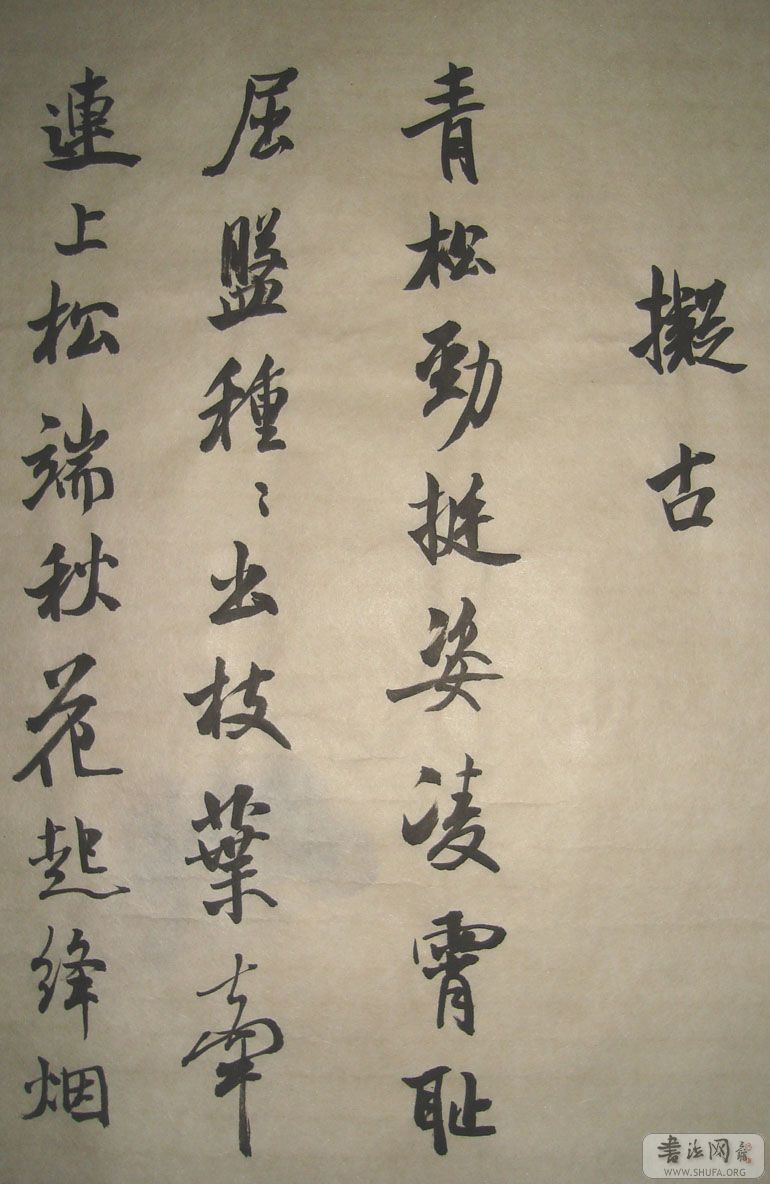 擬古
青松勁挺姿凌霄恥
屈盤種〻出枝葉牽
連上松端秋花起絳烟
书法网
WWW.SHUFA.ORG